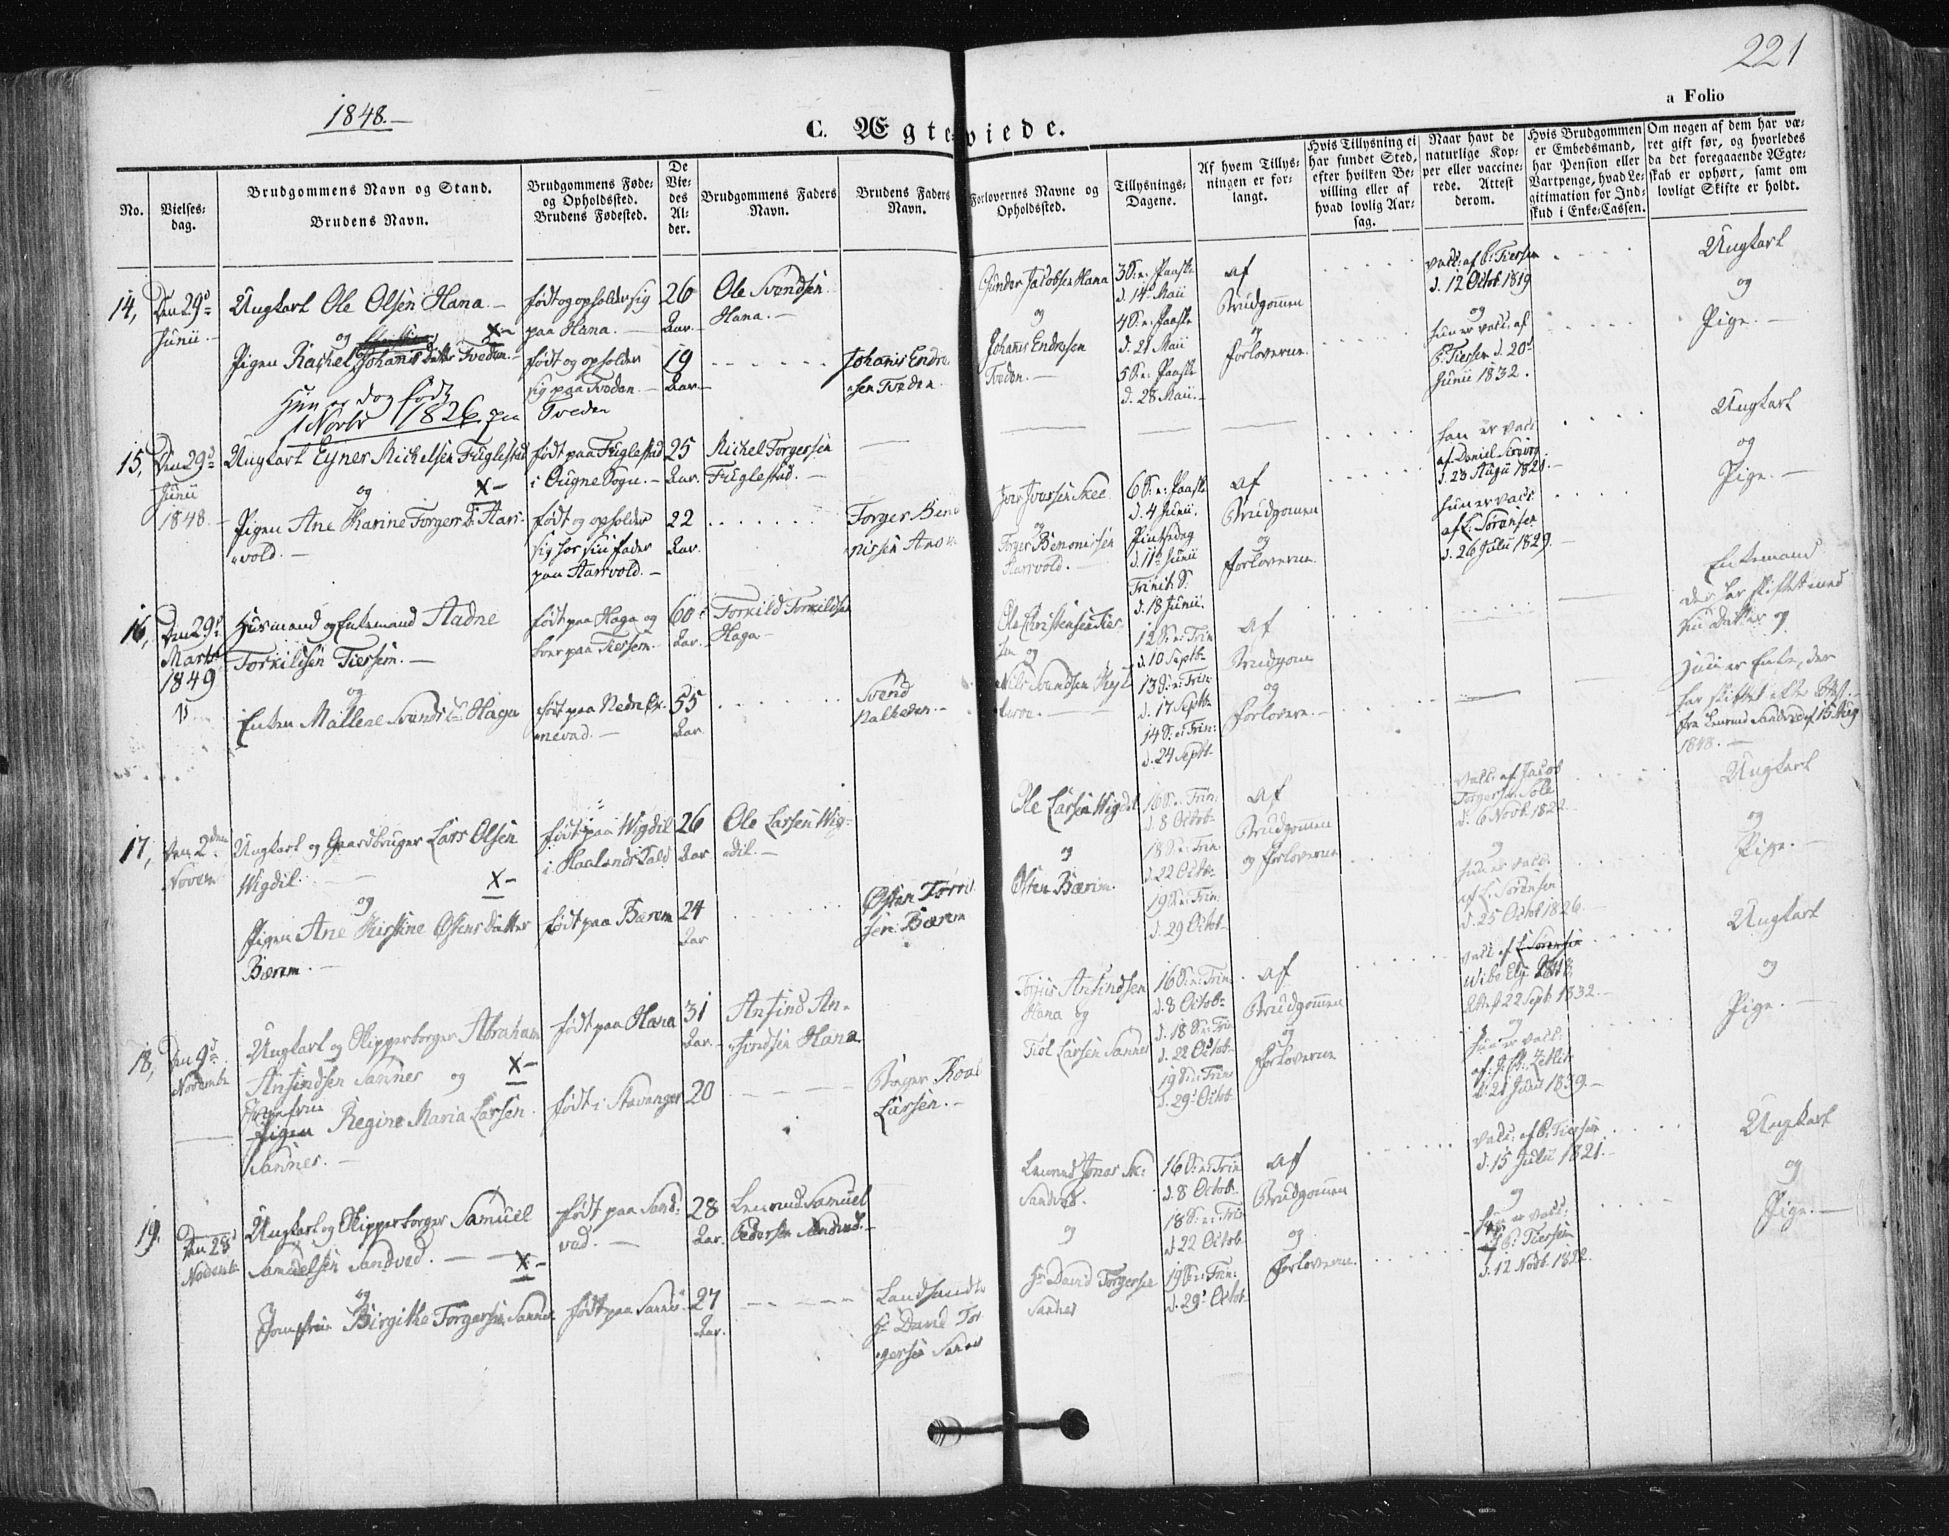 221
a Folio
1848.—
C. Ægteviede.
No.
Vielses-
dag.
Brudgommens Navn og Stand.
Brudens Navn.
Brudgommens Føde-
og Opholdssted.
Brudens Fødested.
De
Vie-
des
Al-
der.
Brudgommens Faders
Navn.
Brudens Faders
Navn.
Forlovernes Navne og
Opholdssted.
Tillysnings-
Dagene.
Af hvem Tillys-
ningen er for-
langt.
Hvis Tillysning ei
har fundet Sted,
efter hvilken Be-
villing eller af
hvad lovlig Aar-
sag.
Naar havt de
naturlige Kop-
per eller vaccine-
rede. Attest
derom.
Hvis Brudgommen
er Embedsmand,
har Pension eller
Vartpenge, hvad Le-
gitimation for Ind-
skud i Enke-Cassen.
Om nogen af dem har væ-
ret gift før, og hvorledes
da det foregaaende Ægte-
skab er ophørt, samt om
lovligt Skifte er holdt.
14,
Den 29d
Junii
Ungkarl Ole Olsen Hana.—
og
Pigen Rachel Johannisdatter Tveden.
Hun er dog født
1 Novbr 1826 paa Tveden
født og opholder sig
paa Hana.—
født og opholder
sig paa Tveden.—
26
Aar.
19
Aar.
Ole Svendsen
Hana.—
Johanis Endre-
sen Tveden.
Gunder Jacobsen Hana
og
Johanis Endresen
Tveden.—
3 S. e. Paaske
d. 14 Maii
4 S. e. Paaske
d. 21 Maii
5 S. e. Paaske
d. 28 Maii.
af
Brudgommen
og
forloverne.
vacc: af B: Tiersen
d. 12 Octob 1819
og
hun er vacc: af
B: Tiersen d. 20
Junii 1832.
Ungkarl
og
Pige.—
15,
Den 29d
Junii
1848.
Ungkarl Eyner Mickelsen Fuglestad
og
Pigen Ane Karine Torgersd: Aars-
vold.—
født paa Fuglestad
i Ougne Sogn.—
født og opholder
sig hos sin Fader
paa Aarsvold.—
25
Aar.
22
Aar.
Mickel Torgersen
Fuglestad.—
Torger Ben
Iver Iversen Skee
og
Torger Bennonisen
Aarsvold.—
6 S. e. Paaske
d. 4 Junii.
Pintsedag
d. 11 Junii
Trinit. S.
d. 18 Junii.
af
Brudgommen
og
forloverne.
han er vacc:
af Daniel
d. 23 Augu 1821.—
hun er vacc:
af L: Sørensen
d. 26 Julii 1829.—
Ungkarl
og
Pige.—
16,
Den 29d
Marts
1849
Husmand og Enkemand Aadne
Torkildsen Tiersem.—
og
Enken Mallene Svendsd: Haga
født paa Haga og
boer paa Tiersem.
født paa Nedre
60
Aar.
55
Aar.
Torkild Torkildsen
Haga
Svend
Ole Christensen Tier-
sem og
Nils Svendsen
12 S. e. Trin
d. 10 Septb
13 S. e. Trin
d. 17 Septb
14 S. e. Trin:
d. 24 Septb
af
Brudgom
og
forlovere.—
Enkemand
der har skiftet med
sin datter og
hun er Enke, der
har skiftet efter Attest
fra Lensmand Sandved af 15 Aug
1848.
17,
Den 2den
Novem
Ungkarl og Gaardbruger Lars Olsen
Wigdil.—
og
Pigen Ane Kirstine Østensdatter
Bærem.—
født paa Wigdil
i Haalands Sald
født paa Bærem
26
Aar
24
Aar
Ole Larsen Wig-
dil.—
Østen Torri
sen Bærem
Ole Larsen Wigdil
og
Østen Bærim.
16 S. e. Trin
d. 8 Octob
18 S. e. Trin
d. 22 Octob
19 S. e. Trin:
d. 29 Octob
af
Brudgommen
og forloverne
vacc: af Jacob
Torgersen Sole
d. 6 Novb 1822
og
hun er vacc:
af L: Sørensen
d. 25 Octob 1826.
Ungkarl
og
Pige.—
18,
Den 9d
Novembr
Ungkarl og Skipperborger Abraham
Ansindsen Sannes og
Jomfrue
Pigen Regine Maria Larsen
Sannes.—
født paa Hana
født i Stavanger
31
Aar.
20
Ansind An-
sindsen Hana
Borger Roal
Larsen.—
Ansindsen
Hana og
Larsen Sannes
16 S. e. Trin
d. 8 Octob
d. 18 S. e. Trin
d. 22 Octob.
19 S. e. Trin
d. 29 Octob
af
Brudgommen
og
forloverne
vacc af L Sørensen
Attest 22 Sept 1832.—
og
hun er vacc:
af J. Ch. Zetliz
d. 21 Junii 1839.—
Ungkarl
og
Pige.—
19.
Den 28d
Novemb
Ungkarl og Skipperborger Samuel
Samuelsen Sandved.—
og
Jomfrue Birgithe Torgersen Sannes
født paa Sand-
ved.—
født paa Sannes
28
Aar.
27
Aar.
Lensmd. Samuel
Pedersen Sandved.—
Landhandl
Hr David Tor
gersen Sannes
Lensmd Jonas
Sandved.
og
Hr David Torgersen
Sannes
16 S. e. Trin
d. 8 Octob.
18 S. e. Trin
d. 22 Octob
19 S. e. Trin:
d. 29 Octob
af
Brudgommen
og
forloverne.
vacc: af B: Tiersen
d. 15 Julii 1821.—
og
hun er vacc:
af B: Tiersen
d. 12 Novb. 1822.
Ungkarl
og
Pige.—